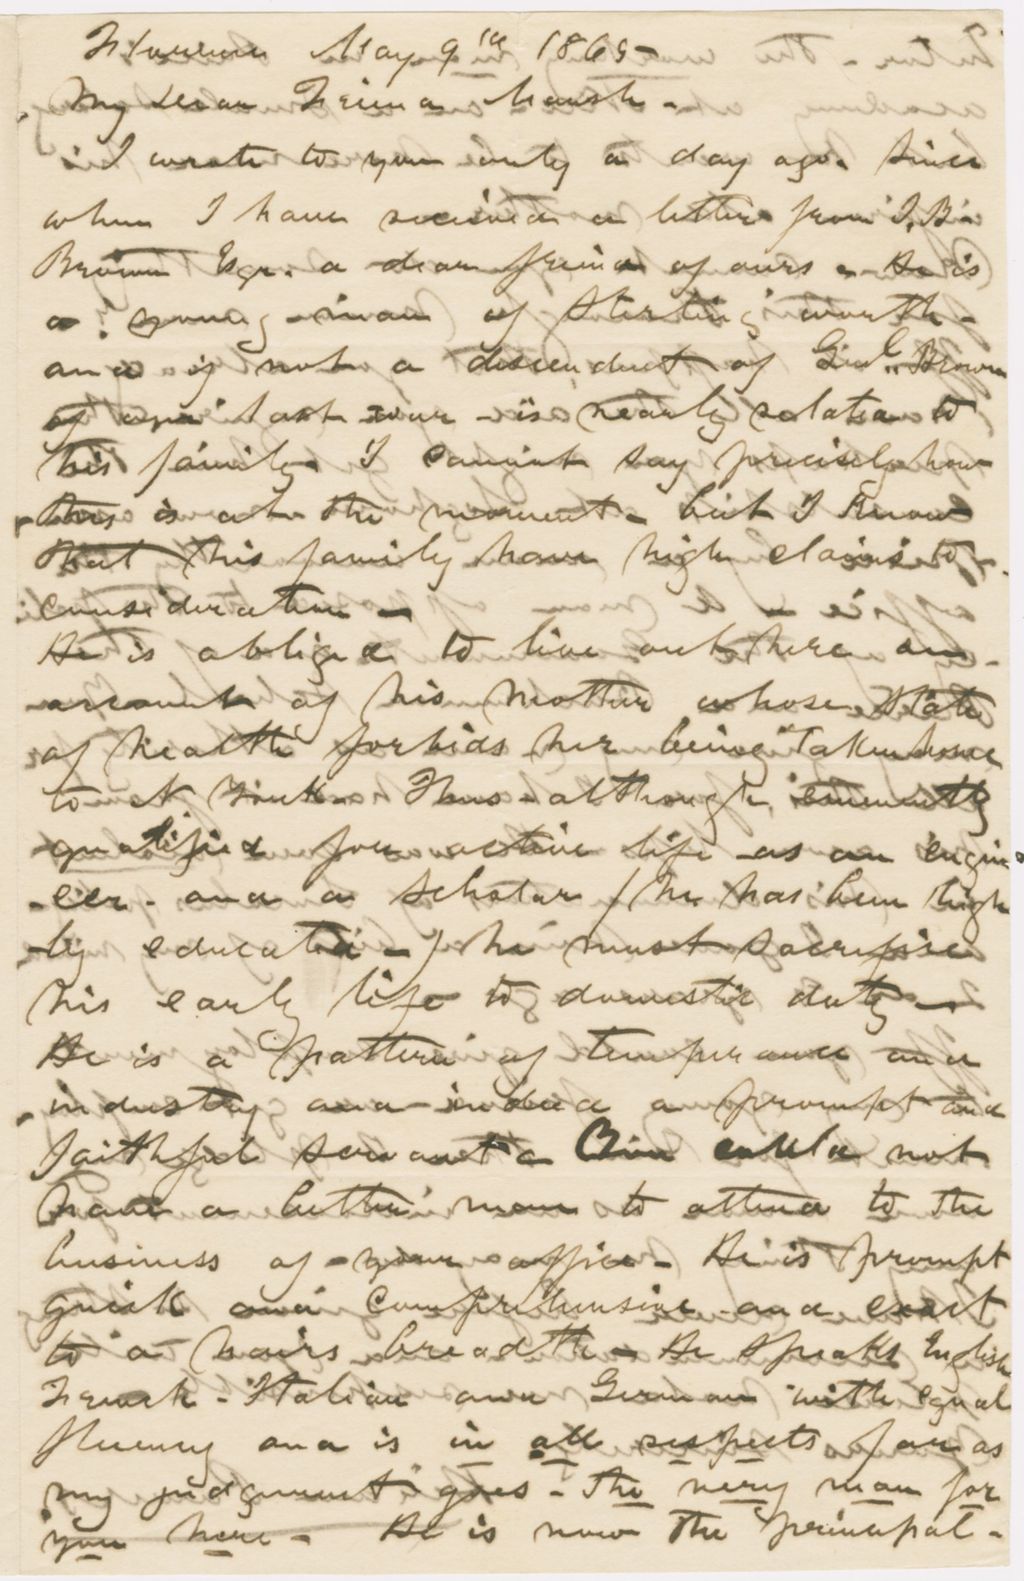 Florence May 9th 1865-
My dear Friend Marsh-
I wrote to you only a day ago. Since
when I have received a letter from J.B.
Brown Esqr. a dear friend of ours - He is
a young man of sterling worth-
and if not a descendent of Genl. Brown
of our last war - is nearly related to
his family. I cannot say precisely how
this is at the moment - but I know
that his family have high claims to
consideration -
He is obliged to live out here on
account of his mother whose state
of health forbids her being taken home
to N York. Thus - although eminently
qualified for active life as an engin
-eer - and a scholar / he has been high
-ly educated - / he must sacrifise
his early life to domestic duty -
He is a pattern of temperance and
industry and indeed a prompt and
faithful servant
not
have a better man to attend to the
business of your office - He is prompt
quick and comprehensive and exact
to a hairs breadth - He speaks English
French - Italian and German with equal
fluency and is in all respects far as
my judgment goes - the very man for
you here - He is now the principal -